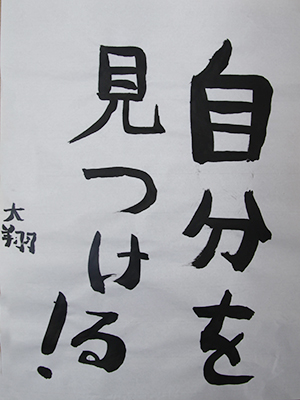 自分を
見つける!
大翔